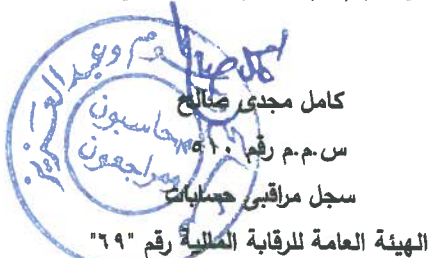 كامل مجدى صالح
س.م.م رقم ٥١٠
سجل مراقبى حسابات
الهيئة العامة للرقابة المالية رقم "٦٩"
وعبدالعزيز
محاسبون
ومراجعون